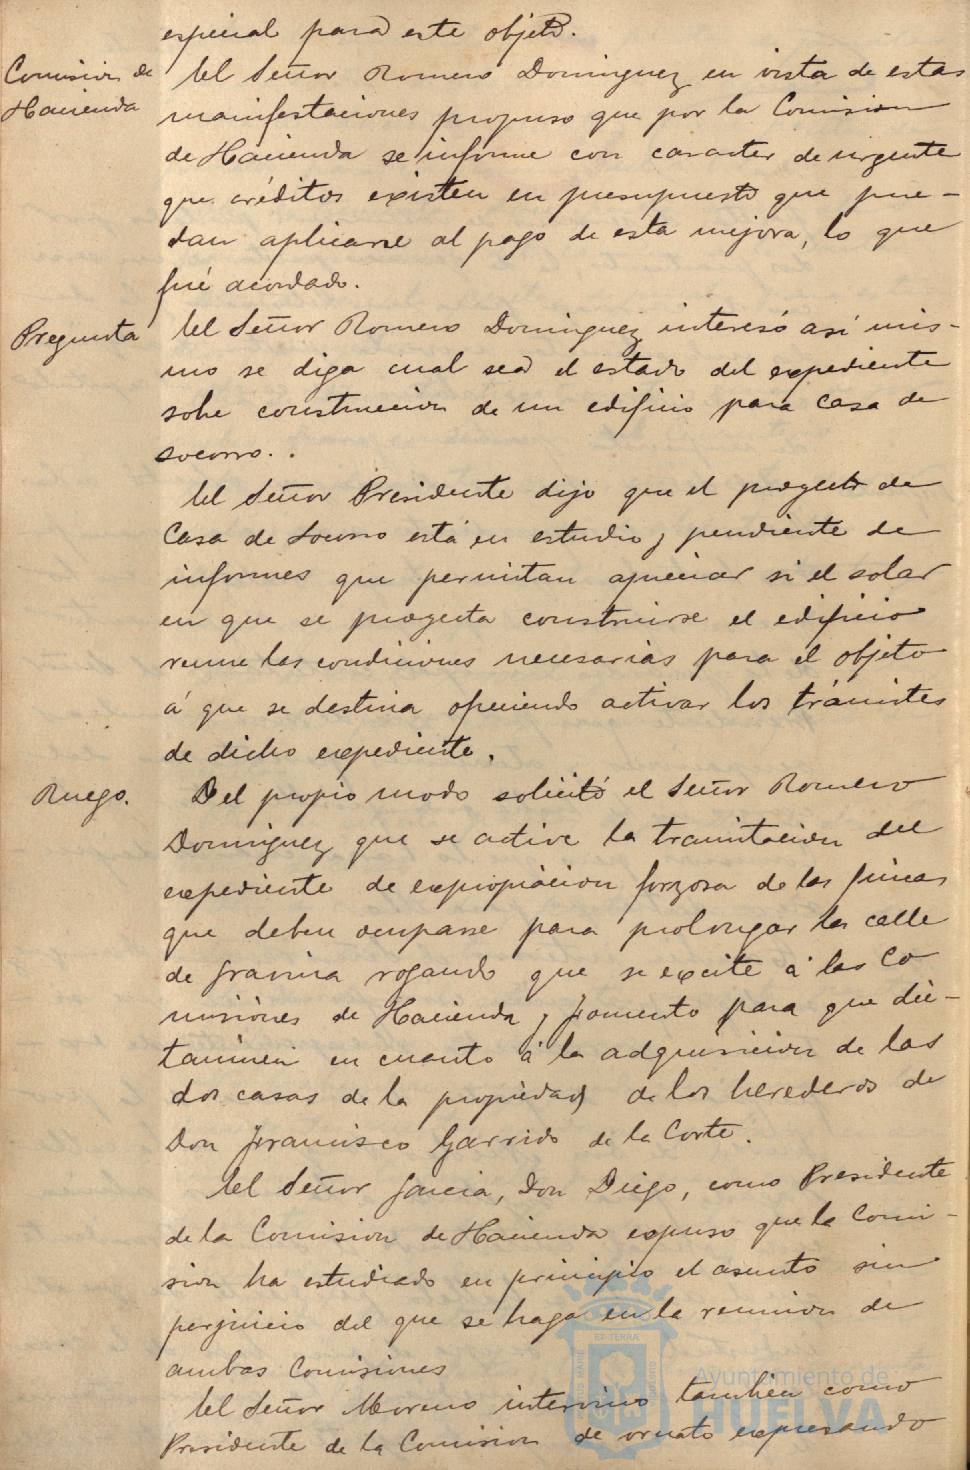 especial para este objeto.
Comision de
Hacienda
El Señor Romero Dominguez en vista de estas
manifestaciones propuso que por la Comision
de Hacienda se informe con caracter de urgente
que créditos existen en presupuesto que pue-
dan aplicarse al pago de esta mejora, lo que
fué acordado.
Pregunta
El Señor Romero Dominguez interesó asi mis-
mo se diga cual sea el estado del expediente
sobre construccion de un edificio para Casa de
socorro.
El Señor Presidente dijo que el proyecto de
Casa de Socorro está en estudio y pendiente de
informes que permitan apreciar si el solar
en que se proyecta construirse el edificio
reune las condiciones necesarias para el objeto
á que se destina ofreciendo activar los trámites
de dicho expediente.
Ruego.
Del propio modo solicitó el Señor Romero
Dominguez que se active la tramitacion del
expediente de expropiacion forzosa de las fincas
que deben ocuparse para prolongar la calle
de Gravina rogando que se excite á las Co
misiones de Hacienda y Fomento para que dic-
taminen en cuanto á la adquisicion de las
dos casas de la propiedad de los herederos de
Don Francisco Garrido de la Corte.
El Señor Garcia, Don Diego, como Presidente
de la Comision de Hacienda expuso que la Comi-
sion ha estudiado en principio el asunto sin
perjuicio del que se haga en la reunion de
ambas Comisiones
El Señor Moreno intervino tambien como
Presidente de la Comision de ornato expresando
Ayuntamiento de
HUELVA